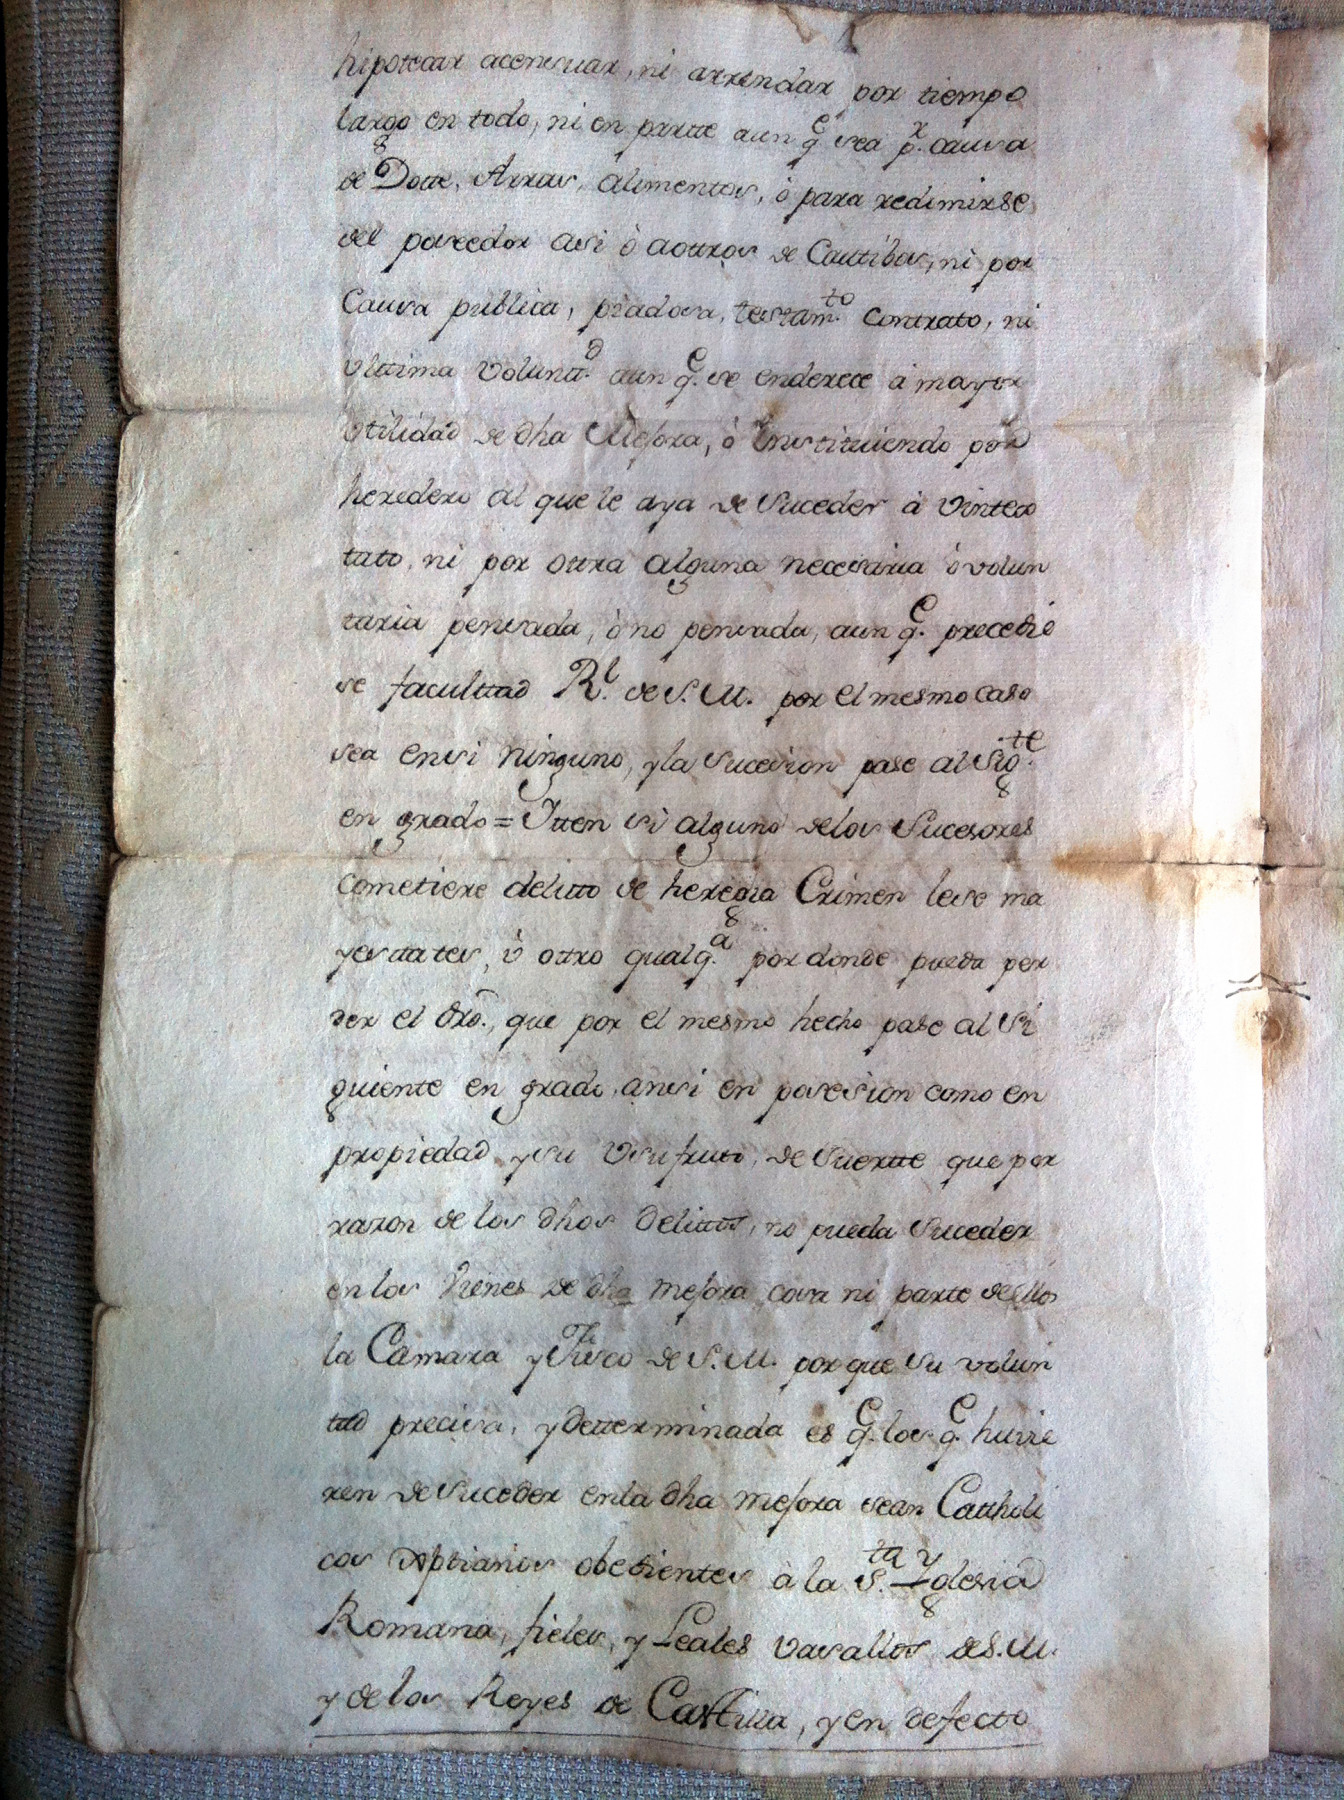 hipotecar acensuar, ni arrendar por tiempo
largo en todo, ni en partte aun q.e sea p.r causa
de Dotte, Arras, alimentos, ò para redimirse
del poseedor asi ò aottros de Cauttibos, ni por
Causa publica, piadosa, testam.to contrato, ni
vlttima Voluntt.d aun q.e se enderece a mayor
vtilidad de dha Mejora, ò Instituiendo por
heredero al que le aya de Suceder à Vintes
tato, ni por ottra alguna necesaria ò volun
taria pensada, ò no pensada, aun q.e precedie
se faculttad R.l de S. M. por el mesmo caso
sea ensi ninguno, y la sucesion pase al Sig.te
en grado = Ytten si alguno delos Sucesores
cometiere delitto de heregia Crimen lese ma
yesttates, ù ottro qualq.a por donde pueda per
der el dro., que por el mesmo hecho pase al Si
guiente en grado, ansi en posesion como en
propiedad y su Vsufruto, de Suertte que por
razon de los dhos delittos, no pueda Suceder
en los vienes de dha mejora cosa ni parte dellos
la Camara y Fisco de S. M. por que su volun
ttad precisa, y detterminada es q.e los q.e huvie
ren de Suceder enla dha mejora sean Cattholi
cos Xptianos obedientes à la S.ta Yglesia
Romana, fieles, y Leales Vasallos de S. M.
y de los Reyes de Casttilla, y en defectto